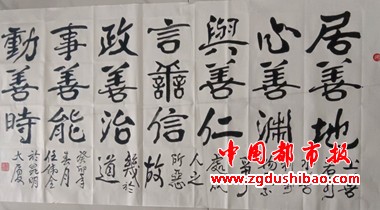 居善地
心善渊
與善仁
言善信
政善治
事善能
動善時
人之
所惡
故
幾於
道
癸卯年
春月
於昆明
大廈
中國都市报
www.zgdushibao.com